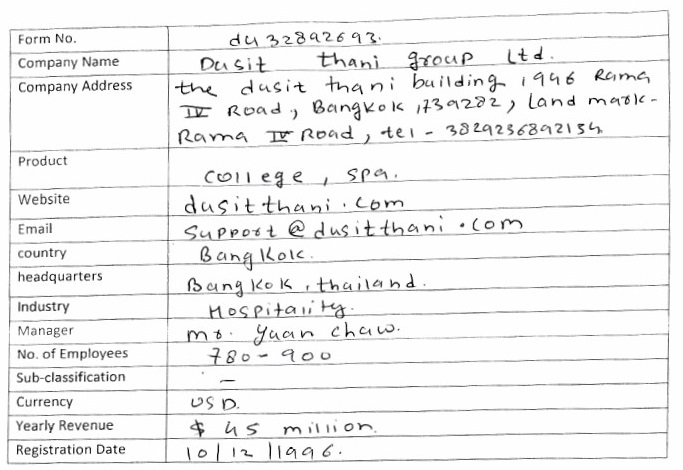 Form No. du 32892693.
Company Name Dusit thani group Ltd.
Company Address the dusit thani building, 946 Rama
IV Road, Bangkok, 739282, Land mark-
Rama IV Road, tel - 3829236892154
Product college, spa.
Website dusitthani.com
Email support@dusitthani.com
country Bangkok.
headquarters Bangkok, thailand.
Industry Hospitality.
Manager mr. Yuan chaw.
No. of Employees 780-900
Sub-classification –
Currency USD.
Yearly Revenue $ 45 million.
Registration Date 10/12/1996.